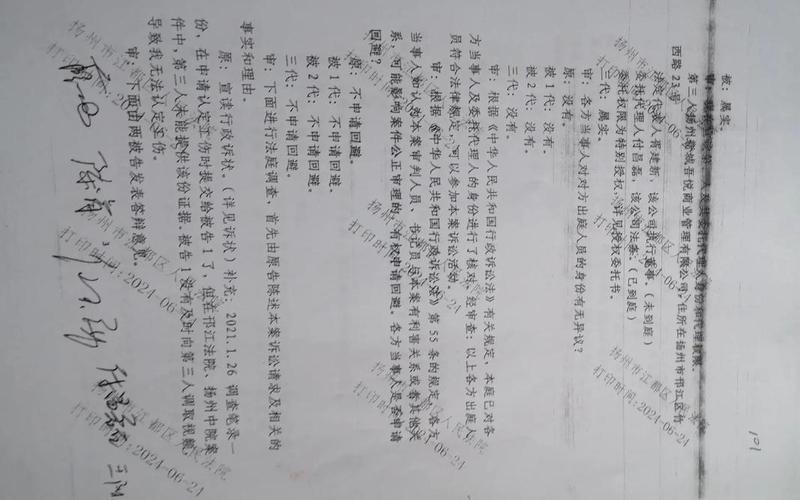 101
被: 属实。
审: 现
第三人扬州邗城吾悦商业管理有限公司, 住所在扬州市邗江区竹
西路 23 号
法定代表人胥建新, 该公司执行董事。(未到庭)
委托代理人付昌磊, 该公司法务; (已到庭)
委托权限为特别授权, 详见授权委托书。
三代: 属实。
审: 各方当事人对对方出庭人员的身份有无异议?
原: 没有。
被 1 代: 没有。
被 2 代: 没有。
三代: 没有。
审: 根据《中华人民共和国行政诉讼法》有关规定, 本庭已对各
方当事人及委托代理人的身份进行了核对, 经审查: 以上各方出庭人
员符合法律规定, 可以参加本案诉讼活动。
审: 根据《中华人民共和国行政诉讼法》第 55 条的规定, 各方
当事人如认为本案审判人员、书记员与本案有利害关系或者其他关
系, 可能影响案件公正审理的, 有权申请回避。各方当事人是否申请
回避?
原: 不申请回避。
被 1 代: 不申请回避。
被 2 代: 不申请回避。
三代: 不申请回避。
审: 下面进行法庭调查, 首先由原告陈述本案诉讼请求及相关的
事实和理由。
原: 宣读行政诉状, (详见诉状) 补充: 2021.1.26 调查笔录一
份, 在申请认定工伤时提交给被告 1 了, 但在邗江法院, 扬州中院案
件中, 第三人未能提供该份证据。被告 1 没有及时向第三人调取视频
导致我无法认定工伤。
审: 下面由两被告发表答辩意见。
扬州市江都区人民法院
打印时间:2024-06-24